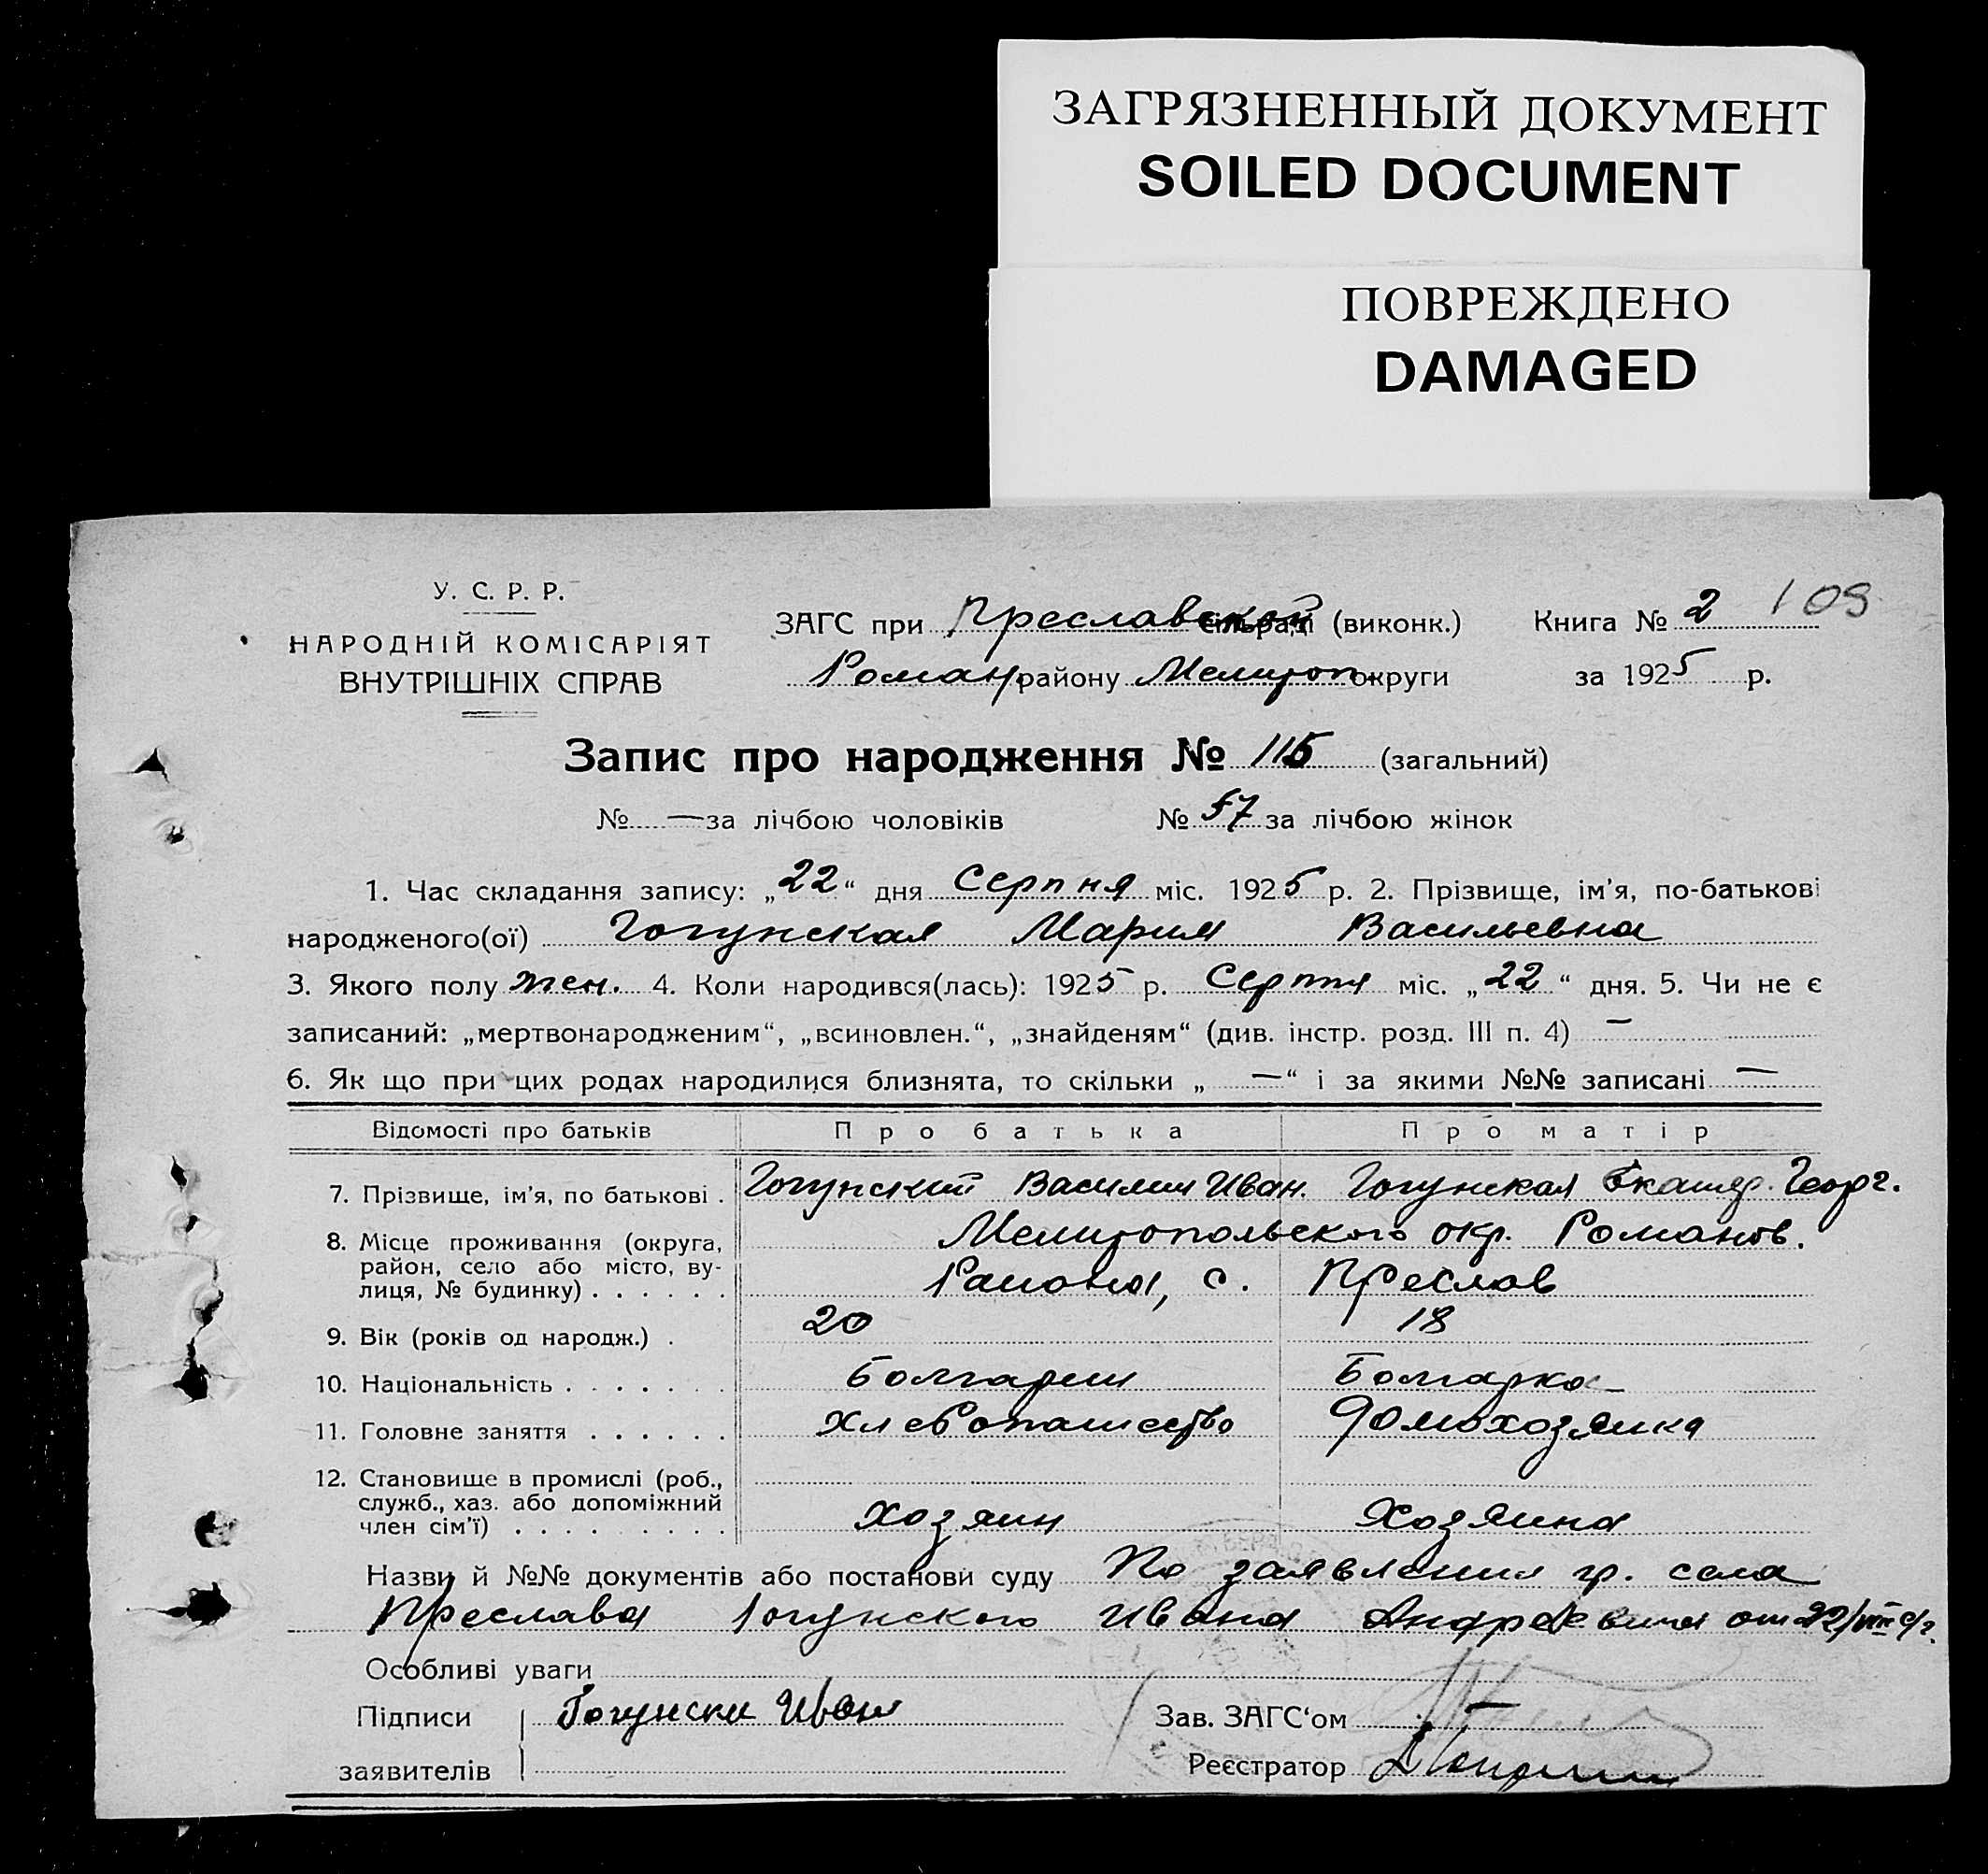 ЗАГРЯЗНЕННЫЙ ДОКУМЕНТ
SOILED DOCUMENT
ПОВРЕЖДЕНО
DAMAGED
У. С. Р. Р.
НАРОДНІЙ КОМІСАРІЯТ
ВНУТРІШНІХ СПРАВ
ЗАГС при Преславской сільраді (виконк.) Книга № 2 109
Роман. району Мелитоп. округи за 1925 р.
Запис про народження № 115 (загальний)
№ — за лічбою чоловіків № 57 за лічбою жінок
1. Час складання запису: „22“ дня Серпня міс. 1925 р. 2. Прізвище, ім'я, по-батькові
народженого(ої) Гогунская Мария Васильевна
3. Якого полу жен. 4. Коли народився(лась): 1925 р. Серпня міс. „22“ дня. 5. Чи не є
записаний: „мертвонародженим“, „всиновлен.“, „знайденям“ (див. інстр. розд. III п. 4) —
6. Як що при цих родах народилися близнята, то скільки „ — “ і за якими №№ записані —
Відомості про батьків Про батька Про матір
7. Прізвище, ім'я, по батькові . Гогунский Василий Иван. Гогунская Екатер. Георг.
8. Місце проживання (округа, Мелитопольского окр. Романов.
район, село або місто, ву-
лиця, № будинку) . . . . . . Района, с. Преслав
9. Вік (років од народж.) . 20 18
10. Національність . . . . . . . Болгарин Болгарка
11. Головне заняття . . . . . . Хлебопашество Домохозяйка
12. Становище в промислі (роб.,
служб., хаз. або допоміжний
член сім'ї) . . . . . . . . . Хозяин Хозяина
Назви й №№ документів або постанови суду По заявления гр. села
Преслава Гогунского Ивана Андреевича от 22/VIII с/г.
Особливі уваги
Підписи Гогунски Иван Зав. ЗАГС'ом
заявителів Реєстратор